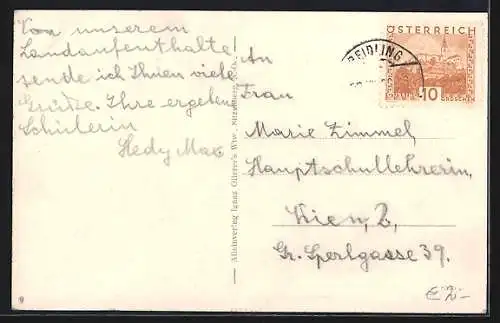 Von unserem
Landaufenthalte
sende ich Ihnen viele
Grüße. Ihre ergeben
Schülerin
Hedy Max
An
Frau
Marie Zimmel,
Hauptschullehrerin,
Wien, 2,
Gr. Sperlgasse 39.
ÖSTERREICH
10
GROSCHEN
REIDLING
Alleinverlag Ignaz Gllerer's Wtw.
€ 2,-
9